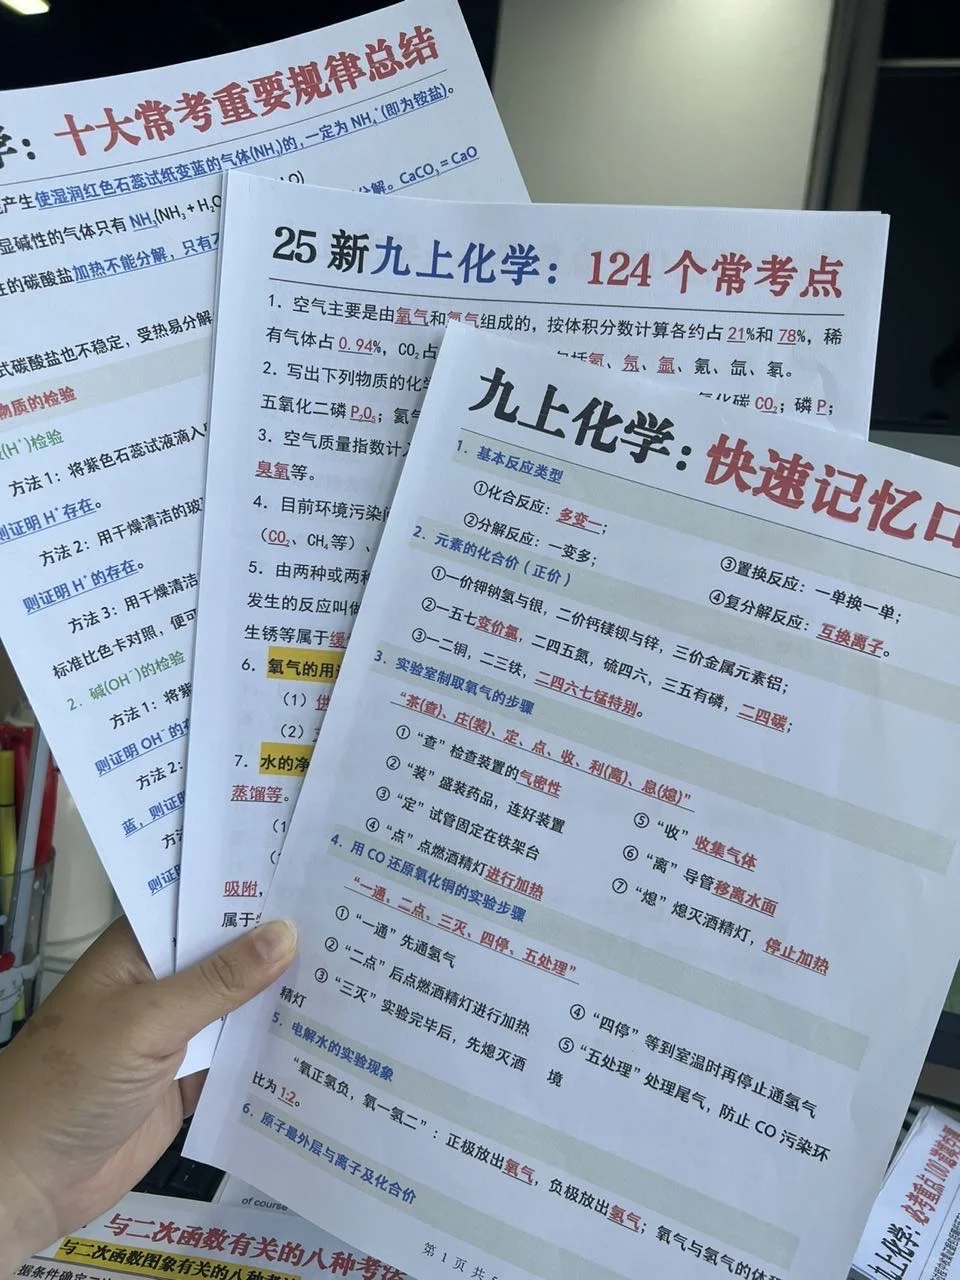 学：十大常考重要规律总结
产生使湿润红色石蕊试纸变蓝的气体(NH₃)的，一定为 NH₄⁺(即为铵盐)。
显碱性的气体只有 NH₃(NH₃ + H₂O
性的碳酸盐加热不能分解，只有
分解。CaCO₃ = CaO
式碳酸盐也不稳定，受热易分解
物质的检验
(H⁺)检验
方法1：将紫色石蕊试液滴入
则证明 H⁺存在。
方法2：用干燥清洁的玻
则证明 H⁺的存在。
方法3：用干燥清洁
标准比色卡对照，便可
2．碱(OH⁻)的检验
方法1：将紫
则证明 OH⁻的存
方法2：
蓝，则证明
方法
则证明
25 新九上化学：124 个常考点
1．空气主要是由氧气和氮气组成的，按体积分数计算各约占 21%和 78%，稀
有气体占 0.94%，CO₂占
包括氦、氖、氩、氪、氙、氡。
2．写出下列物质的化学
氧化碳 CO₂；磷 P；
五氧化二磷 P₂O₅；氦气
3．空气质量指数计入
臭氧等。
4．目前环境污染问
（CO₂、CH₄等）、
5．由两种或两种
发生的反应叫做
生锈等属于缓
6．氧气的用途
（1）供
（2）
7．水的净
蒸馏等。
（1
吸附，
属于
九上化学：快速记忆口
1．基本反应类型
①化合反应：多变一；
②分解反应：一变多；
③置换反应：一单换一单；
④复分解反应：互换离子。
2．元素的化合价（正价）
①一价钾钠氢与银，二价钙镁钡与锌，三价金属元素铝；
②一五七变价氯，二四五氮，硫四六，三五有磷，二四碳；
③一二铜，二三铁，二四六七锰特别。
3．实验室制取氧气的步骤
“茶(查)、庄(装)、定、点、收、利(离)、息(熄)”
①“查”检查装置的气密性
②“装”盛装药品，连好装置
③“定”试管固定在铁架台
④“点”点燃酒精灯进行加热
⑤“收”收集气体
⑥“离”导管移离水面
⑦“熄”熄灭酒精灯，停止加热
4．用 CO 还原氧化铜的实验步骤
“一通、二点、三灭、四停、五处理”
①“一通”先通氢气
②“二点”后点燃酒精灯进行加热
③“三灭”实验完毕后，先熄灭酒
精灯
④“四停”等到室温时再停止通氢气
⑤“五处理”处理尾气，防止 CO 污染环
境
5．电解水的实验现象
“氧正氢负，氧一氢二”：正极放出氧气，负极放出氢气；氧气与氢气的体积
比为 1:2。
6．原子最外层与离子及化合价
第 1 页 共
of course
与二次函数有关的八种考法
与二次函数图象有关的八种考
据条件确定
九上化学：必考重点100